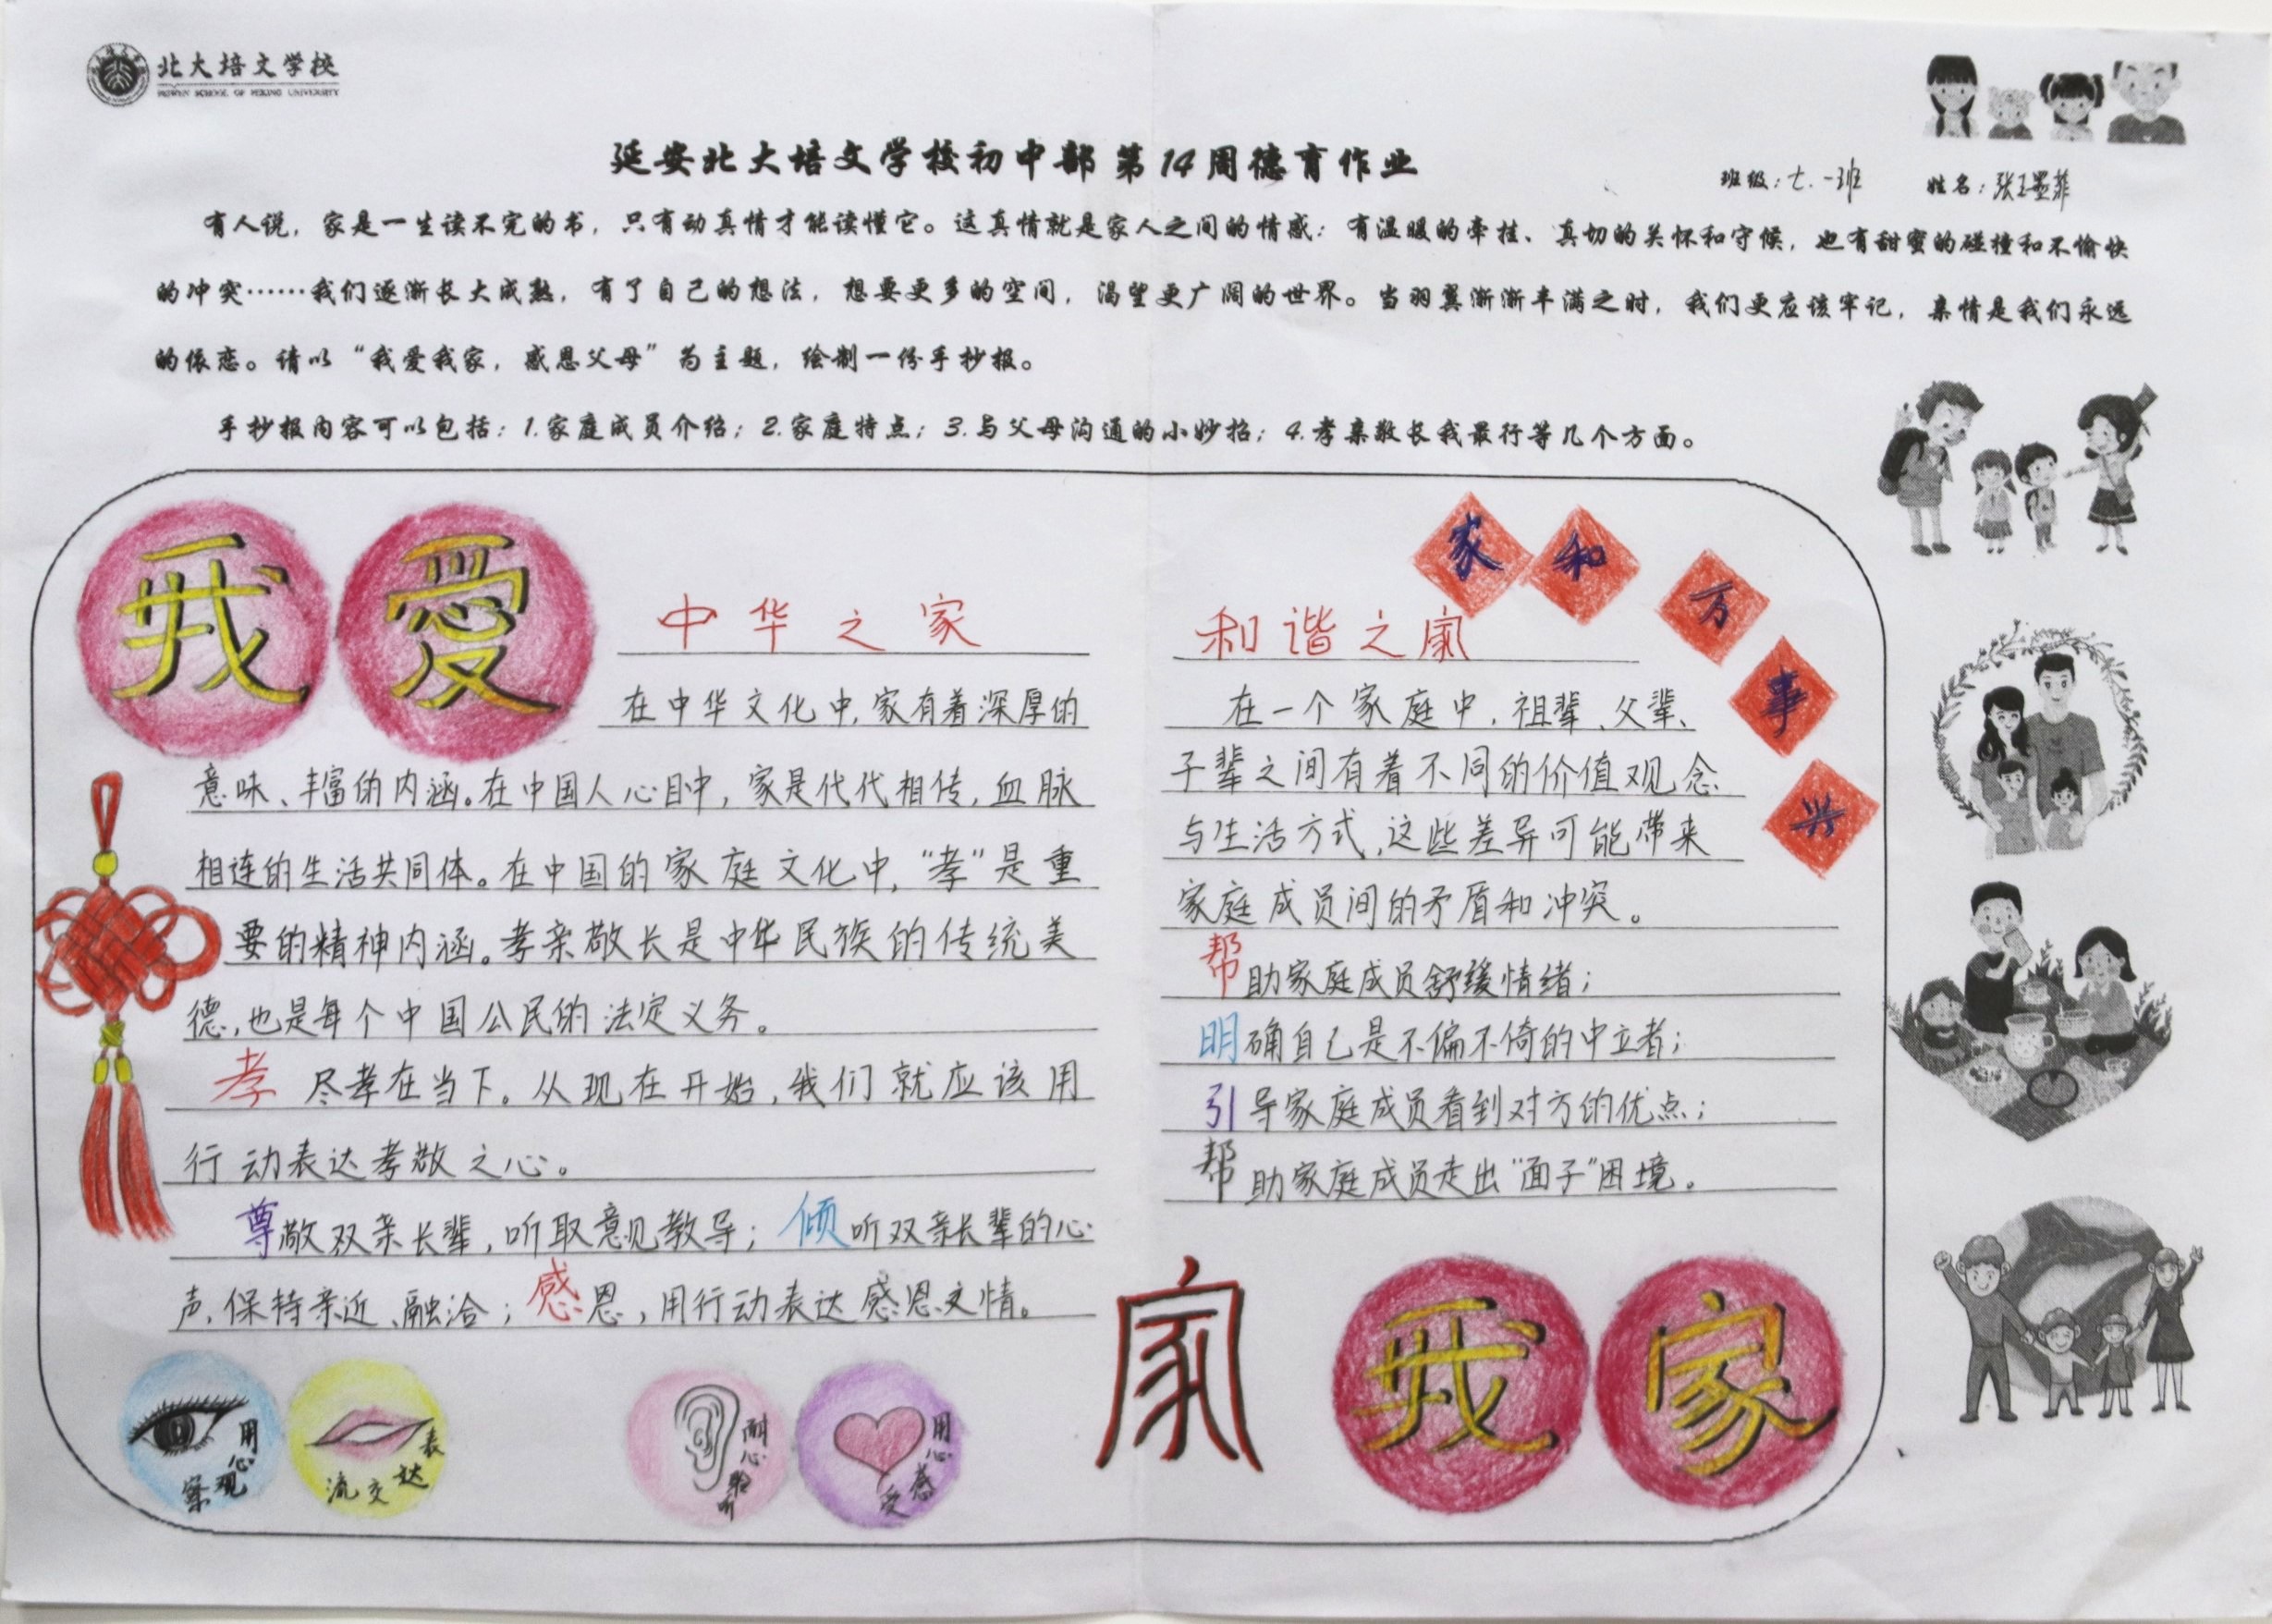 北大培文学校
PEIWEN SCHOOL OF PEKING UNIVERSITY
延安北大培文学校初中部第14周德育作业
班级：七.一班 姓名：张玉墨菲
有人说，家是一生读不完的书，只有动真情才能读懂它。这真情就是家人之间的情感：有温暖的牵挂、真切的关怀和守候，也有甜蜜的碰撞和不愉快
的冲突……我们逐渐长大成熟，有了自己的想法，想要更多的空间，渴望更广阔的世界。当羽翼渐渐丰满之时，我们更应该牢记，亲情是我们永远
的依恋。请以“我爱我家，感恩父母”为主题，绘制一份手抄报。
手抄报内容可以包括：1.家庭成员介绍；2.家庭特点；3.与父母沟通的小妙招；4.孝亲敬长我最行等几个方面。
我爱
中华之家
在中华文化中,家有着深厚的
意味、丰富的内涵。在中国人心目中，家是代代相传，血脉
相连的生活共同体。在中国的家庭文化中，“孝”是重
要的精神内涵。孝亲敬长是中华民族的传统美
德，也是每个中国公民的法定义务。
孝 尽孝在当下。从现在开始，我们就应该用
行动表达孝敬之心。
尊敬双亲长辈，听取意见教导；倾听双亲长辈的心
声，保持亲近、融洽；感恩，用行动表达感恩之情。
用心观察
表达交流
耐心聆听
用心感受
家和万事兴
和谐之家
在一个家庭中，祖辈、父辈、
子辈之间有着不同的价值观念
与生活方式，这些差异可能带来
家庭成员间的矛盾和冲突。
帮助家庭成员舒缓情绪；
明确自己是不偏不倚的中立者；
引导家庭成员看到对方的优点；
帮助家庭成员走出“面子”困境。
家
我家